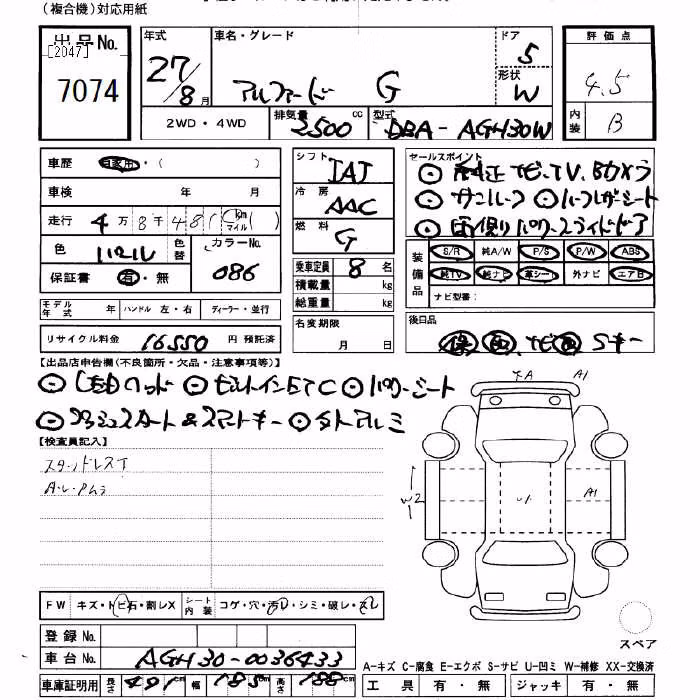 (複合機)対応用紙
出品No.
[2047]
7074
年式
27/8月
車名・グレード
アルファード G
ドア
5
形状
W
評価点
4.5
内装
B
2WD・4WD
排気量 2500 cc
型式 DBA-AGH30W
車歴 自家用・( )
車検 年 月
走行 4万8千48( km マイル)
色 パール 色替 カラーNo. 086
保証書 有・無
シフト IAT
冷房 AAC
燃料 G
乗車定員 8名
積載量 kg
総重量 kg
セールスポイント
⊙純正ナビ・TV、Bカメラ
⊙サンルーフ ⊙ハーフレザーシート
⊙両側パワースライドドア
装備品
S/R 純A/W P/S P/W ABS
純TV 純ナビ 革シート 外ナビ エアB
ナビ型番:
モデル年式 年 ハンドル 左・右 ディーラー・並行
リサイクル料金 16550 円 預託済
名変期限
月 日
後日品
保 取 ナビ 記 Sキー
【出品店申告欄(不良箇所・欠品・注意事項等)】
⊙LEDヘッド ⊙ビルトインETC ⊙パワーシート
⊙プッシュスタート&スマートキー ⊙外アルミ
【検査員記入】
スタッドレスT
A・U・Pムラ
4A A1
W2
A1
FW キズ・トビ石・割レX
シート内装 コゲ・穴・汚レ・シミ・破レ・スレ
登録No.
車台No. AGH30-0036433
車庫証明用 長さ 491cm 幅 185cm 高さ 188cm
スペア
A-キズ C-腐食 E-エクボ S-サビ U-凹ミ W-補修 XX-交換済
工具 有・無 ジャッキ 有・無